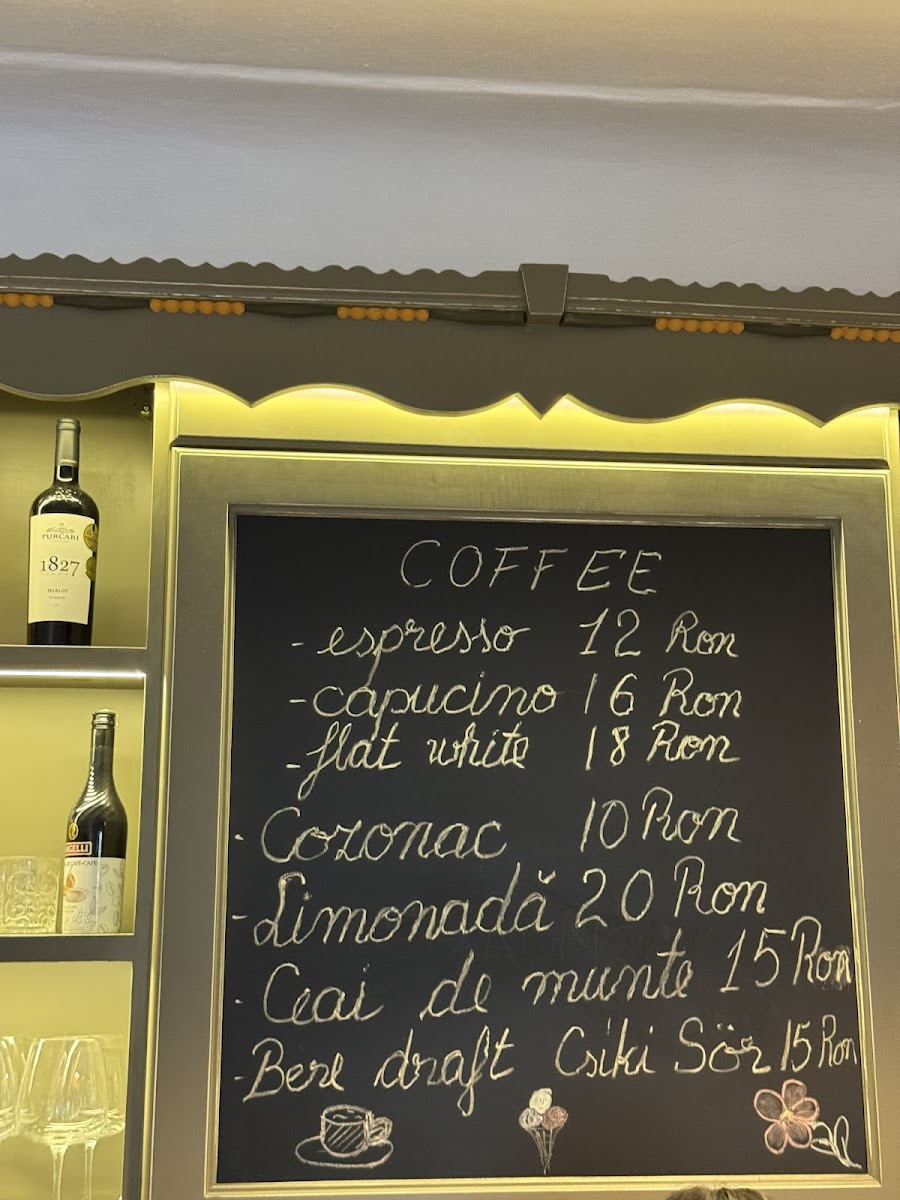 COFFEE
- espresso 12 Ron
- capucino 16 Ron
- flat white 18 Ron
- Cozonac 10 Ron
- Limonadă 20 Ron
- Ceai de munte 15 Ron
- Bere draft Csiki Sör 15 Ron
PURCARI
1827
MERLOT
CAFE-CAFE